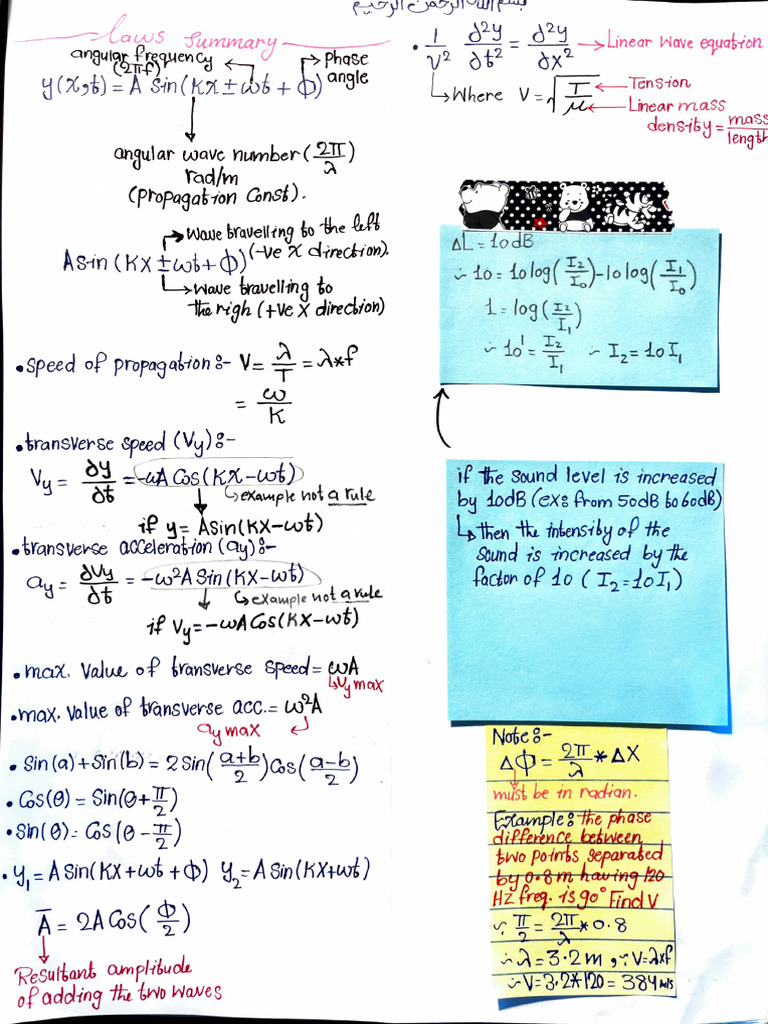 بسم الله الرحمن الرحيم
Laws summary
angular frequency
(2πf)
phase
angle
y(x,t) = A Sin(Kx ± ωt + Φ)
angular wave number (2π/λ)
rad/m
(propagation Const).
wave travelling to the left
(-ve x direction).
A sin (Kx ± ωt + Φ)
wave travelling to
the righ (+ve x direction)
• speed of propagation :- V = λ/T = λ*f
= ω/K
• transverse speed (Vy) :-
Vy = ∂y/∂t = -ωA Cos(Kx - ωt)
example not a rule
if y = A sin(Kx - ωt)
• transverse acceleration (ay) :-
ay = ∂Vy/∂t = -ω²A Sin(Kx - ωt)
example not a rule
if Vy = -ωA Cos(Kx - ωt)
• max. value of transverse speed = ωA
Vy max
• max. value of transverse acc. = ω²A
ay max
• Sin(a) + Sin(b) = 2 Sin((a+b)/2) Cos((a-b)/2)
• Cos(θ) = Sin(θ + π/2)
• Sin(θ) = Cos(θ - π/2)
• y₁ = A Sin(Kx + ωt + Φ) y₂ = A Sin(Kx + ωt)
A̅ = 2A Cos(Φ/2)
Resultant amplitude
of adding the two waves
• 1/V² ∂²y/∂t² = ∂²y/∂x² → Linear wave equation
Where V = √(T/μ)
Tension
Linear mass
density = mass/length
ΔL = 10 dB
∴ 10 = 10 log(I₂/I₀) - 10 log(I₁/I₀)
1 = log(I₂/I₁)
∴ 10¹ = I₂/I₁ ∴ I₂ = 10 I₁
if the sound level is increased
by 10dB (ex: from 50dB to 60dB)
then the intensity of the
sound is increased by the
factor of 10 (I₂ = 10 I₁)
Note :-
ΔΦ = 2π/λ * ΔX
must be in radian.
Example: the phase
difference between
two points separated
by 0.8 m having 120
HZ freq. is 90° Find V
∵ π/2 = 2π/λ * 0.8
∴ λ = 3.2 m, ∵ V = λ*f
∴ V = 3.2*120 = 384 m/s